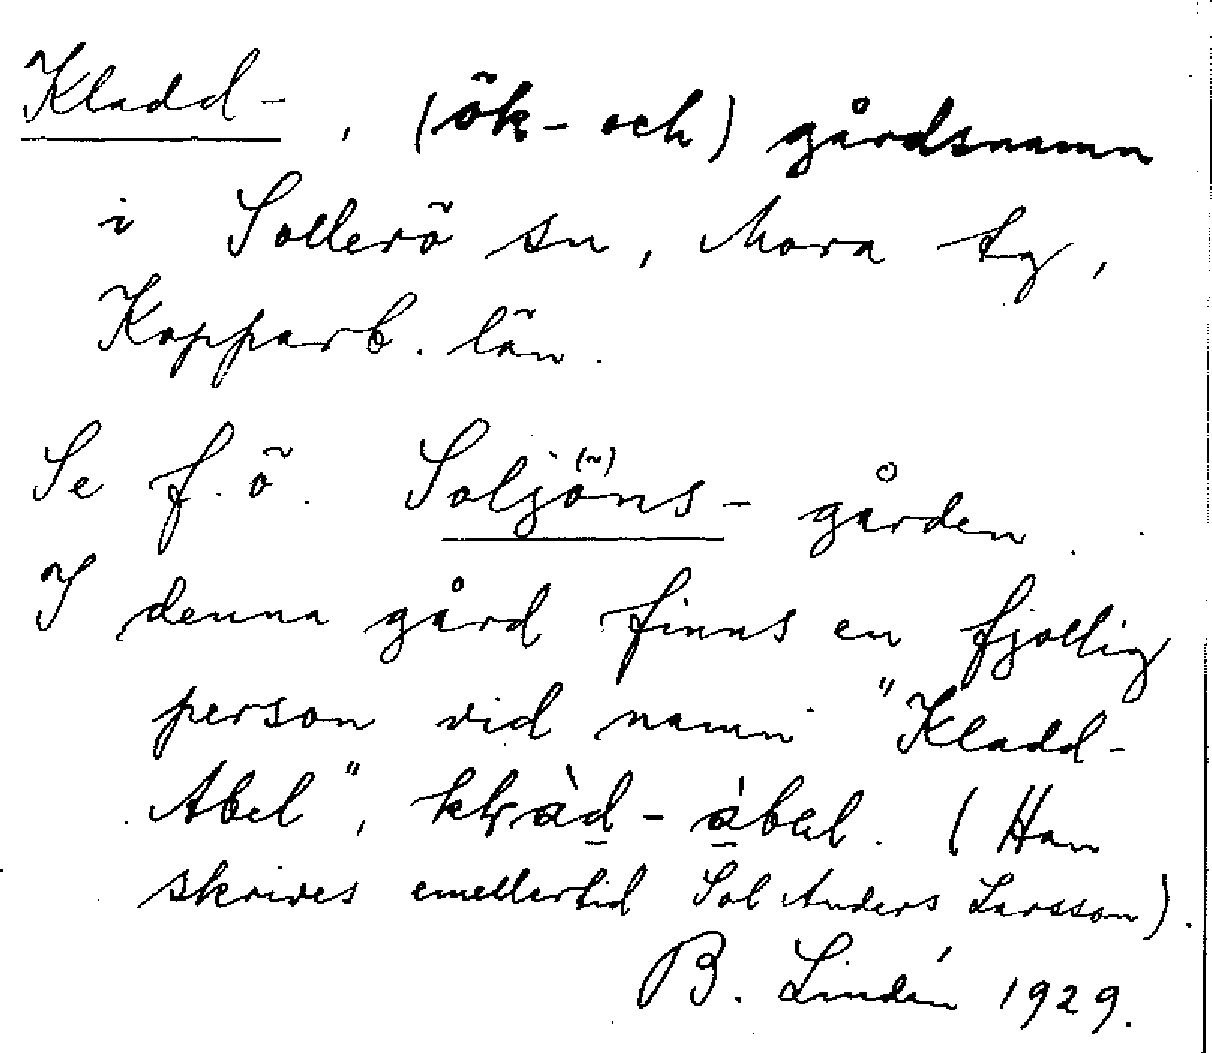 Kladd-, (ök- och) gårdsnamn
i Sollerö sn, Mora tg,
Kopparb. län.
Se f.ö. Soljöns-gården.
I denna gård finns en fjollig
person vid namn "Kladd-
Abel", (Han
skrives emellertid Sol Anders Larsson).
B. Lindén 1929.